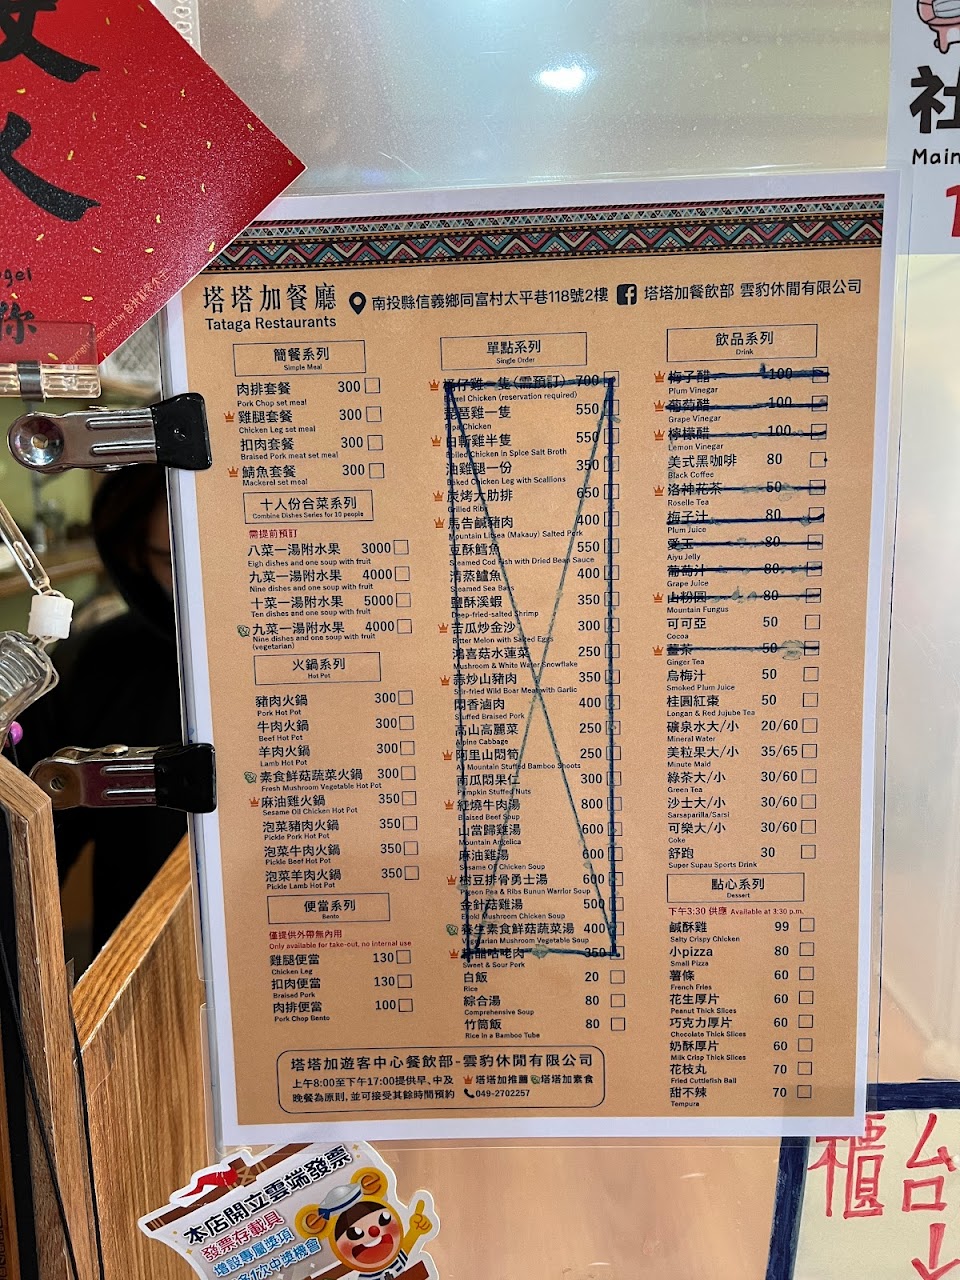 塔塔加餐廳
Tataga Restaurants
南投縣信義鄉同富村太平巷118號2樓
塔塔加餐飲部 雲豹休閒有限公司
簡餐系列
Simple Meal
肉排套餐 300
Pork Chop set meal
雞腿套餐 300
Chicken Leg set meal
扣肉套餐 300
Braised Pork meat set meal
鯖魚套餐 300
Mackerel set meal
十人份合菜系列
Combine Dishes Series for 10 people
需提前預訂
八菜一湯附水果 3000
Eigh dishes and one soup with fruit
九菜一湯附水果 4000
Nine dishes and one soup with fruit
十菜一湯附水果 5000
Ten dishes and one soup with fruit
九菜一湯附水果 4000
Nine dishes and one soup with fruit
(vegetarian)
火鍋系列
Hot Pot
豬肉火鍋 300
Pork Hot Pot
牛肉火鍋 300
Beef Hot Pot
羊肉火鍋 300
Lamb Hot Pot
素食鮮菇蔬菜火鍋 300
Fresh Mushroom Vegetable Hot Pot
麻油雞火鍋 350
Sesame Oil Chicken Hot Pot
泡菜豬肉火鍋 350
Pickle Pork Hot Pot
泡菜牛肉火鍋 350
Pickle Beef Hot Pot
泡菜羊肉火鍋 350
Pickle Lamb Hot Pot
便當系列
Bento
僅提供外帶無內用
Only available for take-out, no internal use
雞腿便當 130
Chicken Leg
扣肉便當 130
Braised Pork
肉排便當 100
Pork Chop Bento
單點系列
Single Order
仔雞一隻(需預訂) 700
Chicken (reservation required)
琵琶雞一隻 550
Pipa Chicken
白斬雞半隻 550
Boiled Chicken in Spice Salt Broth
油雞腿一份 350
Baked Chicken Leg with Scallions
炭烤大肋排 650
Grilled Ribs
馬告鹹豬肉 400
Mountain Litsea (Makauy) Salted Pork
豆酥鱈魚 550
Steamed Cod Fish with Dried Bean Sauce
清蒸鱸魚 400
Steamed Sea Bass
鹽酥溪蝦 350
Deep-fried-salted Shrimp
苦瓜炒金沙 300
Bitter Melon with Salted Eggs
鴻喜菇水蓮菜 250
Mushroom & White Water Snowflake
蒜炒山豬肉 350
Stir-fried Wild Boar Meat with Garlic
悶香滷肉 400
Stuffed Braised Pork
高山高麗菜 250
Alpine Cabbage
阿里山悶筍 250
Ali Mountain Stuffed Bamboo Shoots
南瓜悶果仁 300
Pumpkin Stuffed Nuts
紅燒牛肉湯 800
Braised Beef Soup
山當歸雞湯 600
Mountain Angelica
麻油雞湯 600
Sesame Oil Chicken Soup
樹豆排骨勇士湯 600
Pigeon Pea & Ribs Bunun Warrior Soup
金針菇雞湯 500
Enoki Mushroom Chicken Soup
養生素食鮮菇蔬菜湯 400
Vegetarian Mushroom Vegetable Soup
糖醋咕咾肉 350
Sweet & Sour Pork
白飯 20
Rice
綜合湯 80
Comprehensive Soup
竹筒飯 80
Rice in a Bamboo Tube
飲品系列
Drink
梅子醋 100
Plum Vinegar
葡萄醋 100
Grape Vinegar
檸檬醋 100
Lemon Vinegar
美式黑咖啡 80
Black Coffee
洛神花茶 50
Roselle Tea
梅子汁 80
Plum Juice
愛玉 80
Aiyu Jelly
葡萄汁 80
Grape Juice
山粉圓 80
Mountain Fungus
可可亞 50
Cocoa
薑茶 50
Ginger Tea
烏梅汁 50
Smoked Plum Juice
桂圓紅棗 50
Longan & Red Jujube Tea
礦泉水大/小 20/60
Mineral Water
美粒果大/小 35/65
Minute Maid
綠茶大/小 30/60
Green Tea
沙士大/小 30/60
Sarseparilla/Sarsi
可樂大/小 30/60
Coke
舒跑 30
Super Supau Sports Drink
點心系列
Dessert
下午3:30 供應 Available at 3:30 p.m.
鹹酥雞 99
Salty Crispy Chicken
小pizza 80
Small Pizza
薯條 60
French Fries
花生厚片 60
Peanut Thick Slices
巧克力厚片 60
Chocolate Thick Slices
奶酥厚片 60
Milk Crisp Thick Slices
花枝丸 70
Fried Cuttlefish Ball
甜不辣 70
Tempura
塔塔加遊客中心餐飲部-雲豹休閒有限公司
上午8:00至下午17:00提供早、中及 塔塔加推薦 塔塔加素食
晚餐為原則,並可接受其餘時間預約 049-2702257
本店開立雲端發票
發票存載具
增設專屬獎項
多1次中獎機會
社
Main
櫃台